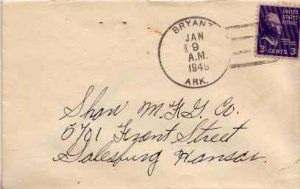 BRYANT
JAN
9
A.M.
ARK.
UNITED
STATES
POSTAGE
3 CENTS 3
Shaw M.F.G Co.
5701 Front Street
Galesburg Kansas.